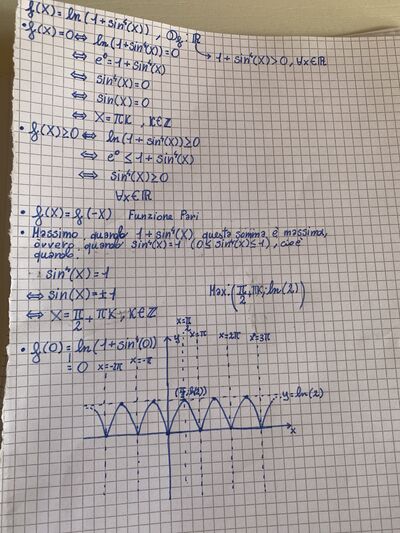 f(X)=ln(1+sin⁴(X)) , Df: ℝ
↳ 1+sin⁴(X)>0, ∀x∈ℝ
• f(X)=0 ⇔ ln(1+sin⁴(X))=0
⇔ e⁰=1+sin⁴(X)
⇔ sin⁴(X)=0
⇔ sin(X)=0
⇔ X=πK , K∈ℤ
• f(X)≥0 ⇔ ln(1+sin⁴(X))≥0
⇔ e⁰≤1+sin⁴(X)
⇔ sin⁴(X)≥0
∀x∈ℝ
• f(X)=f(-X) Funzione Pari
• Massimo quando 1+sin⁴(X) questa somma è massima,
ovvero quando sin⁴(X)=1 (0≤sin⁴(X)≤1), cioè
quando:
sin⁴(X)=1
⇔ sin(X)=±1
⇔ X=π/2+πK, K∈ℤ
Max:(π/2+πK;ln(2))
• f(0)=ln(1+sin⁴(0))
=0
x=-2π
x=-π
y
x=π/2
x=π
x=2π
x=3π
(π/2;ln(2))
y=ln(2)
x